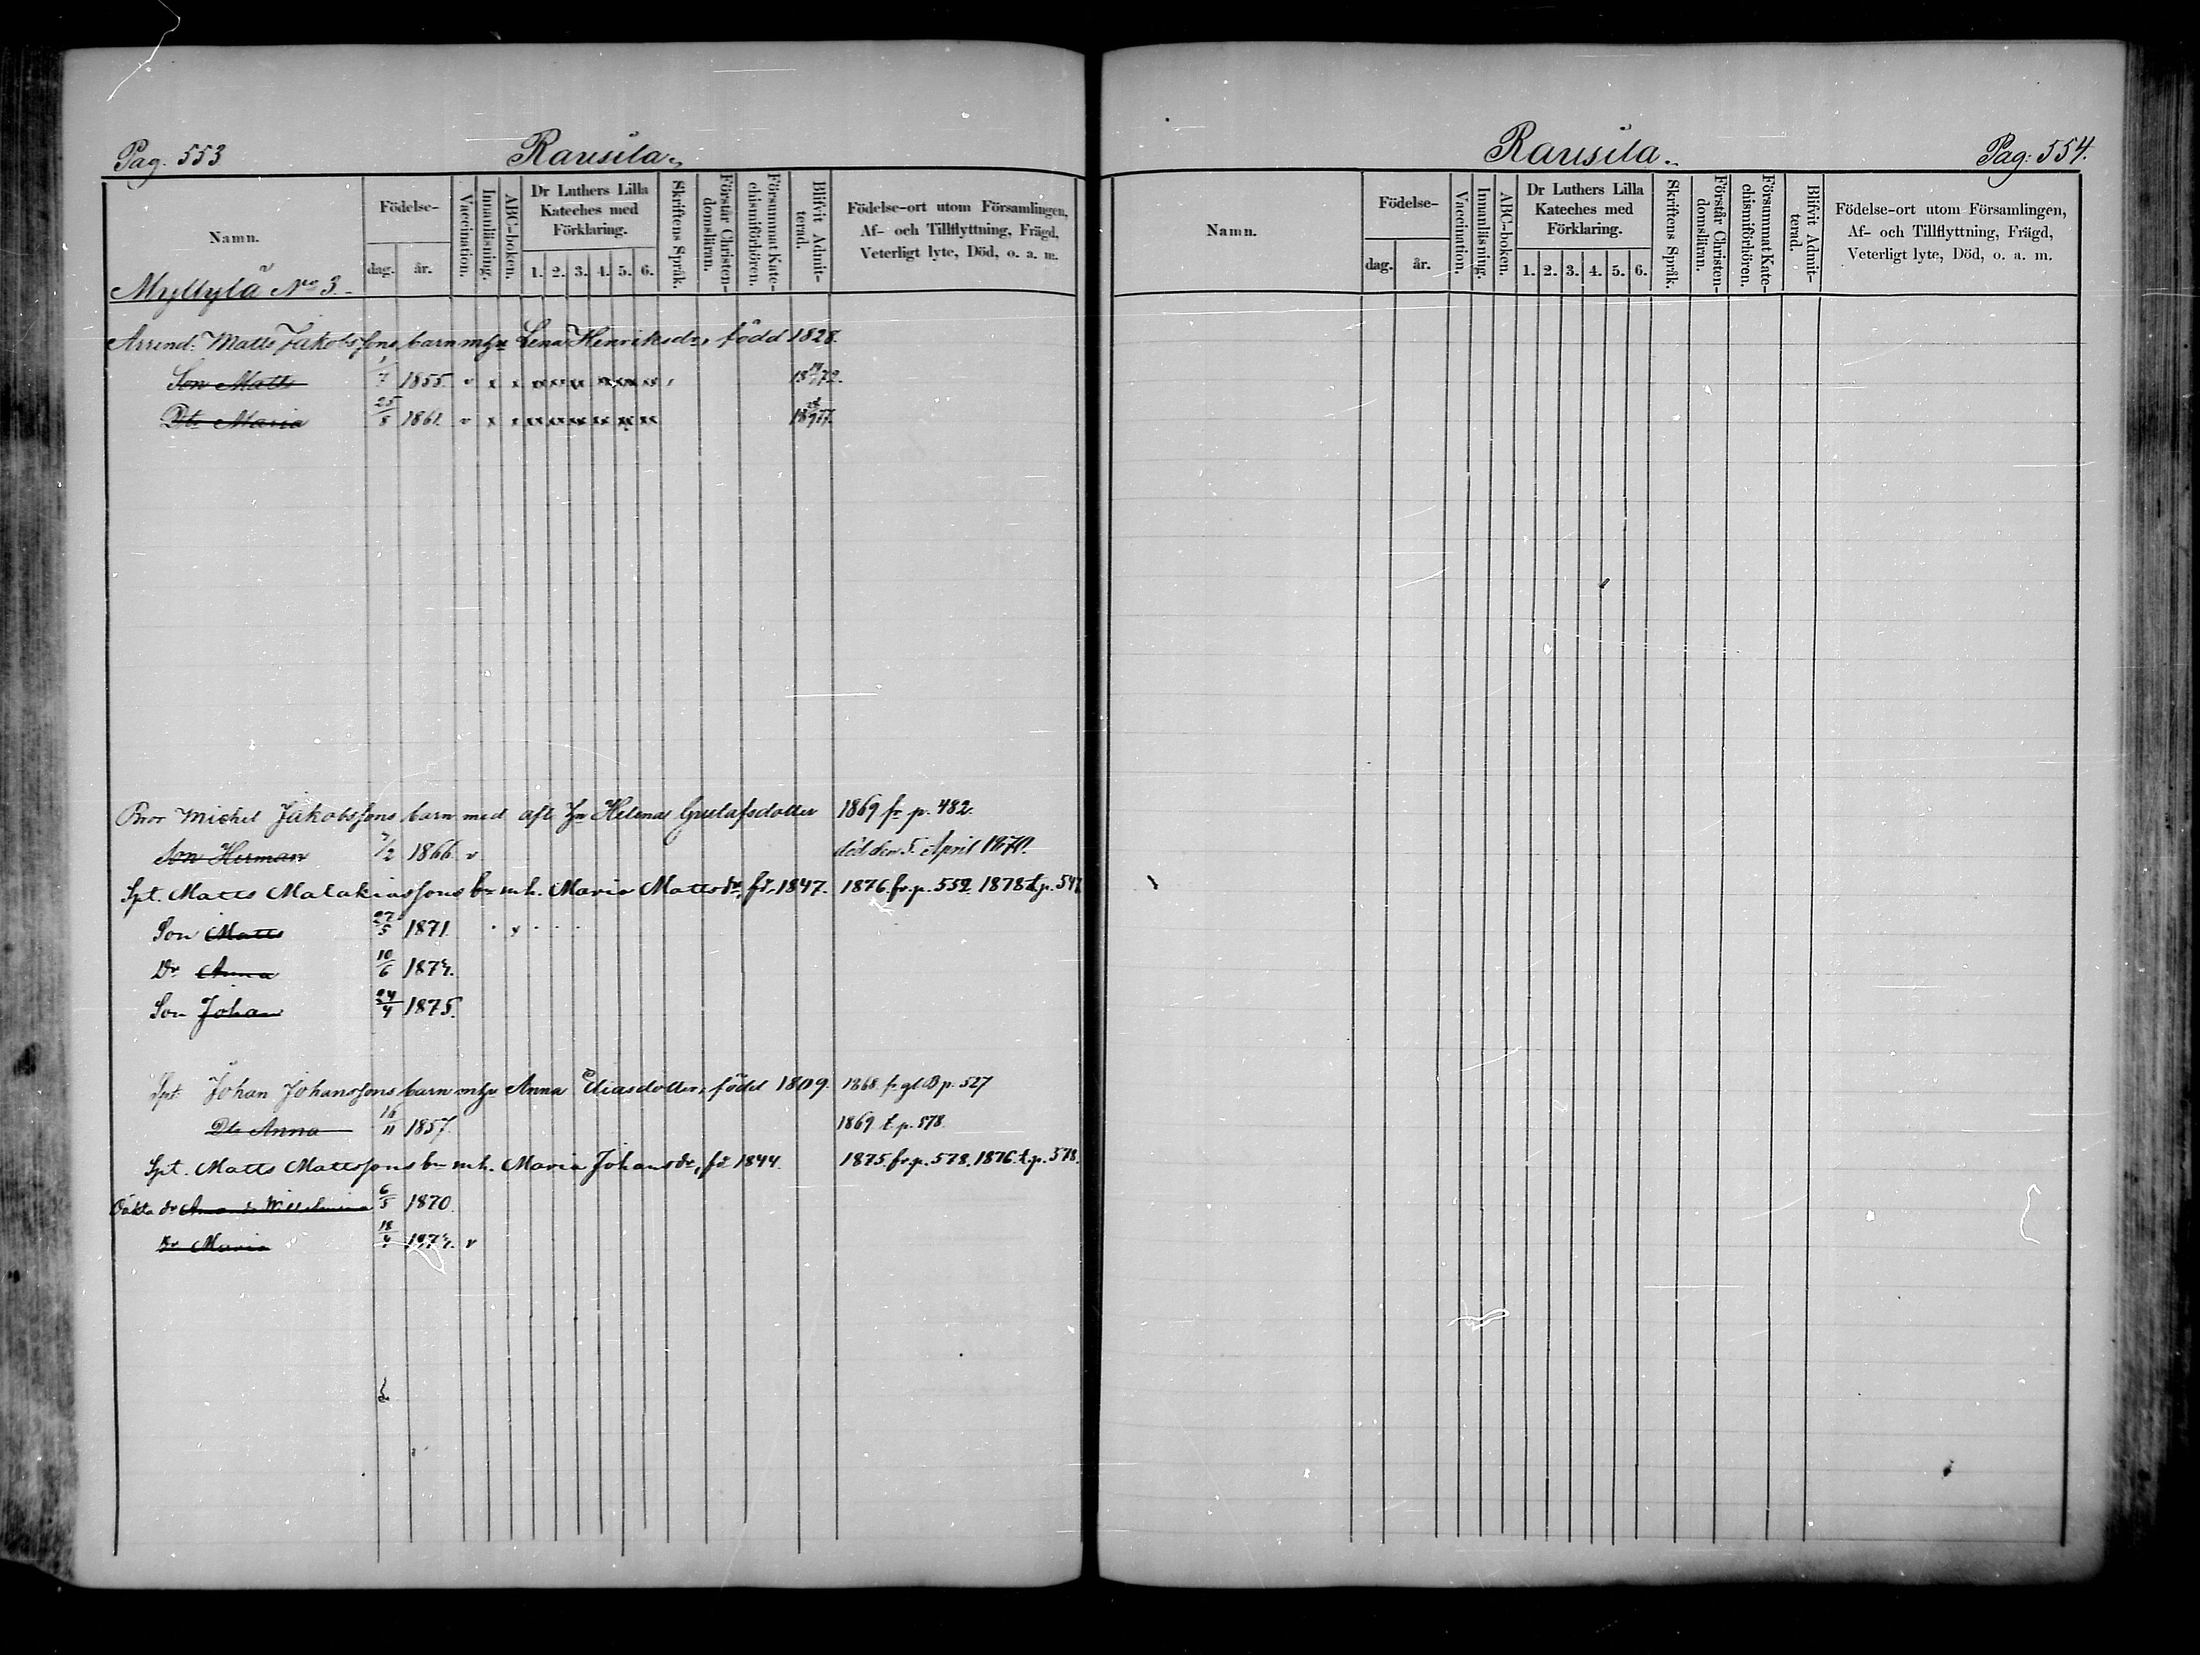 Pag. 553
Rausila.
Namn.
Födelse-
dag.
år.
Vaccination.
Innanläsning.
ABC-boken.
Dr Luthers Lilla Kateches med Förklaring.
1. 2. 3. 4. 5. 6.
Skriftens Språk.
Förstår Christendomsläran.
Försummat Katechismiförhören.
Blifvit Admitterad.
Födelse-ort utom Församlingen,
Af- och Tillflyttning, Frägd,
Veterligt lyte, Död, o. a. m.
Myllylä No 3.
Arrend. Matts Jakobssons barn m hu Lena Henriksdr, född 1828.
Son Matts 1855. v x x 1872.
Dtr Maria 25/8 1861. v x 1877.
Bror Michel Jakobssons barn med afl. hu Helena Gustafsdotter 1869 fr p. 482.
Son Herman 7/2 1866. v död den 5. April 1870.
Spt. Matts Malakiassons bn m h. Maria Mattsdr, fd. 1847. 1876. fr. p. 559. 1878 t. p. 547
Son Matts 27/5 1871.
Dr Anna 10/6 1874.
Son Johan 24/4 1875.
Spt Johan Johanssons barn m hu Anna Eliasdotter, född 1809. 1868. fr gl. B p. 527
Dtr Anna 16/11 1857. 1869 t. p. 578.
Spt. Matts Mattssons bn m h. Maria Johansdr, fd 1844. 1875. fr. p. 578. 1876. t. p. 578.
Oäkta dr Amanda Wilhelmina 6/5 1870.
Dr Maria 18/4 1874. v
Rausila.
Pag: 554.
Namn.
Födelse-
dag.
år.
Vaccination.
Innanläsning.
ABC-boken.
Dr Luthers Lilla Kateches med Förklaring.
1. 2. 3. 4. 5. 6.
Skriftens Språk.
Förstår Christendomsläran.
Försummat Katechismiförhören.
Blifvit Admitterad.
Födelse-ort utom Församlingen,
Af- och Tillflyttning, Frägd,
Veterligt lyte, Död, o. a. m.